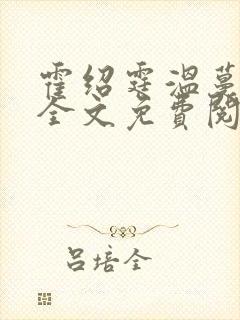 霍绍霆温蔓
全文免费阅
吕培全